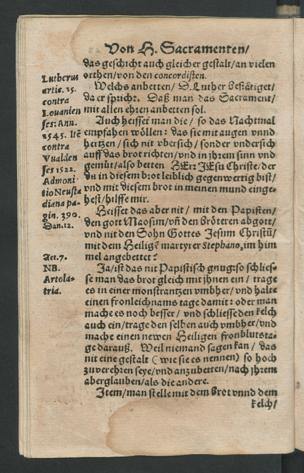 Von H. Sacramenten/
das geschicht auch gleicher gestalt/an vielen
orthen/von den concordisten.
Lutherus
artic. 15.
contra
Louanien
ses: Ann.
1545. It
contra
Vualden
ses 1522.
Admoni
tio Neusta
diana pa-
gin. 390.
Dan. 12.
Welchs anbetten/ D. Luther bestätiget/
da er spricht. Daß man das Sacrament/
mit allen ehren anbetten sol.
Auch heisset man die/ so das Nachtmal
empfahen wöllen: das sie mit augen vnnd
hertzen/ sich nit vbersich/ sonder vndersich
auff das brot richten/vnd in ihrem sinn vnd
gemüt/also betten. HErr JEsu Christe: der
du in diesem brot leiblich gegenwertig bist/
vnd mit diesem brot in meinen mund einge-
hest/hilffe mir.
Heisset das aber nit/ mit den Papisten/
den gott Maosim/vñ den bröteren abgott/
vnd nit den Sohn Gottes Jesum Christũ/
mit dem Heiligẽ martyrer Stephano, im him
mel angebettet?
Act. 7.
NB.
Artola-
tria.
Ja/ist das nit Papistisch gnug: so schlies-
se man das brot gleich mit jhnen ein/ trage
es in einer monstrantzen vmbher/vnd halte
einen fronleichnams tage damit: oder man
mache es noch besser/ vnd schliesse den kelch
auch ein/trage den selben auch vmbher/vnd
mache einen newen Heiligen fronblutsta-
ge darauß. Weil niemand sagen kan/ das
nit eine gestalt (wie sie es nennen) so hoch
zu verehren seye/vnd anzubeten/nach jhrem
aberglauben/als die andere.
Item/man stelle mit dem brot vnnd dem
kelch/